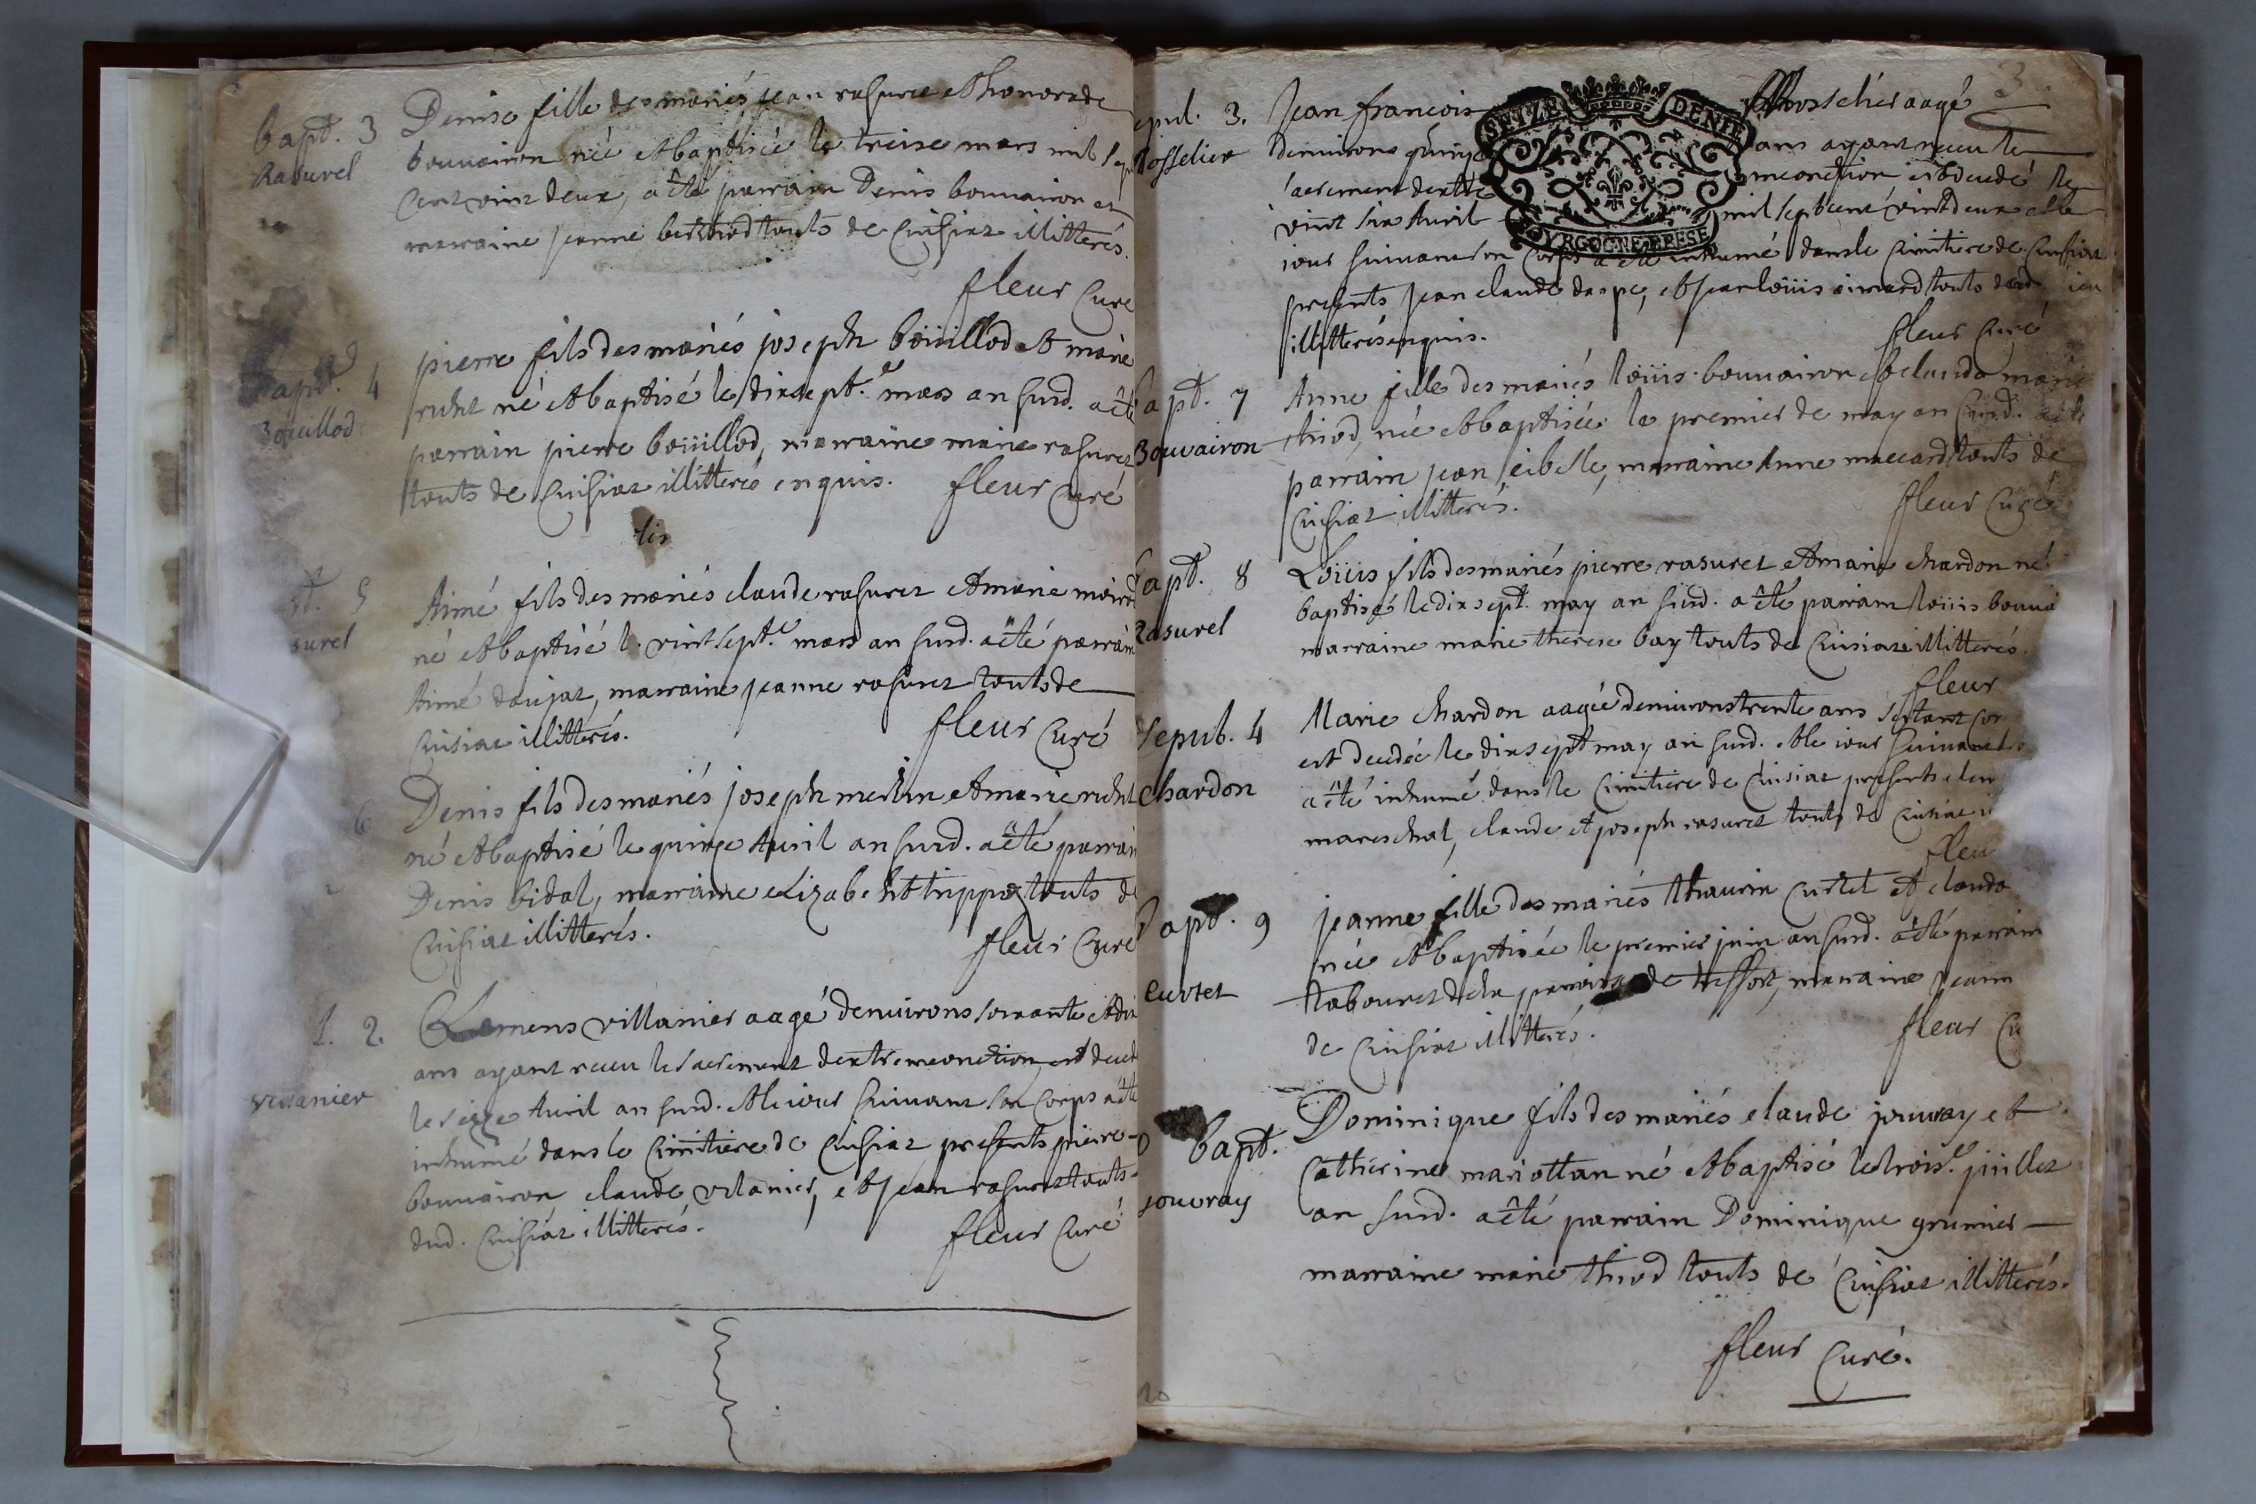 bapt. 3
Rasurel
Denise fille des mariés jean rasurez et honorade
bouvairon née et baptisée le treise mars mil sept
cent vint deux, a êté parrain Denis bouvairon et
marraine jeanne berthod touts de Cuisiat illitterés.
fleur Curé
bapt. 4
Bouillod
pierre fils des mariés joseph boüillod et marie
ruht né et baptisé le dixsept.e mars an susd. a êté
parrain pierre boüillod, marraine marie rasurez
touts de Cuisiat illitterés enquis. fleur Curé
5
surel
Aimé fils des mariés claude rasurez et marie
né et baptisé le vintsept.e mars an susd. a êté parrain
Aimé daujat, marraine jeanne rasurez touts de
Cuisiat illitterés.
fleur Curé
6
Denis fils des mariés joseph merlin et marie ruht
né et baptisé le quinze Avril an susd. a êté parrain
Denis vidal, marraine elizabeht trippoz touts de
Cuisiat illitterés.
fleur Curé
2.
vilanier
Clemens villanier aagé denvirons soixante et dix
ans ayant receu le sacrement dextremeonction est decedé
le seize Avril an susd. et le jour suivant son corps a êté
inhumé dans le Cimitiere de Cuisiat presents pierre
bouvairon claude vilanier, et jean rasurez touts
dud. Cuisiat illitterés.
fleur Curé
3
SEIZE DENIE
BOURGOGNE BRESSE
sepul. 3.
Rosselier
Jean françois Rosselier aagé
denvirons quinze ans ayant receu le
sacrement dextremeonction est decedé le
vint six Avril mil septcent vintdeux et le
jour suivant son corps a êté inhumé dans le Cimitiere de Cuisiat
presents jean claude daspe, et jean loüis aimard touts dud. lieu
illitterés enquis.
fleur Curé
bapt. 7
Bouvairon
Anne fille des mariés loüis bouvairon et clauda marie
thiod, née et baptisée le premier de may an susd. a êté
parrain jean, marraine Anne maccard touts de
Cuisiat illitterés.
fleur Curé
bapt. 8
Rasurel
Loüis fils des mariés pierre rasurez et marie chardon né
baptisé le dixsept. may an susd. a êté parrain loüis bouvai
marraine marie therese bay touts de Cuisiat illitterés.
fleur
sepul. 4
Chardon
Marie chardon aagée denvirons trente ans sestant con
est decedée le dixsept may an susd. et le jour suivant
a êté inhumé dans le Cimitiere de Cuisiat presents
mareschal, claude et joseph rasurez touts de Cuisiat
fleu
bapt. 9
curtet
jeanne fille des mariés thaurin Curtet et clauda
née et baptisée le premier juin an susd. a êté parrain
tabouret de la parroisse de treffort, marraine jeann
de Cuisiat illitterés.
fleur Cu
bapt.
jouvray
Dominique fils des mariés claude jouvray et
Catherine mariottan né et baptisé le trois.e juillet
an susd. a êté parrain Dominique grumier
marraine marie thiod touts de Cuisiat illitterés.
fleur Curé.